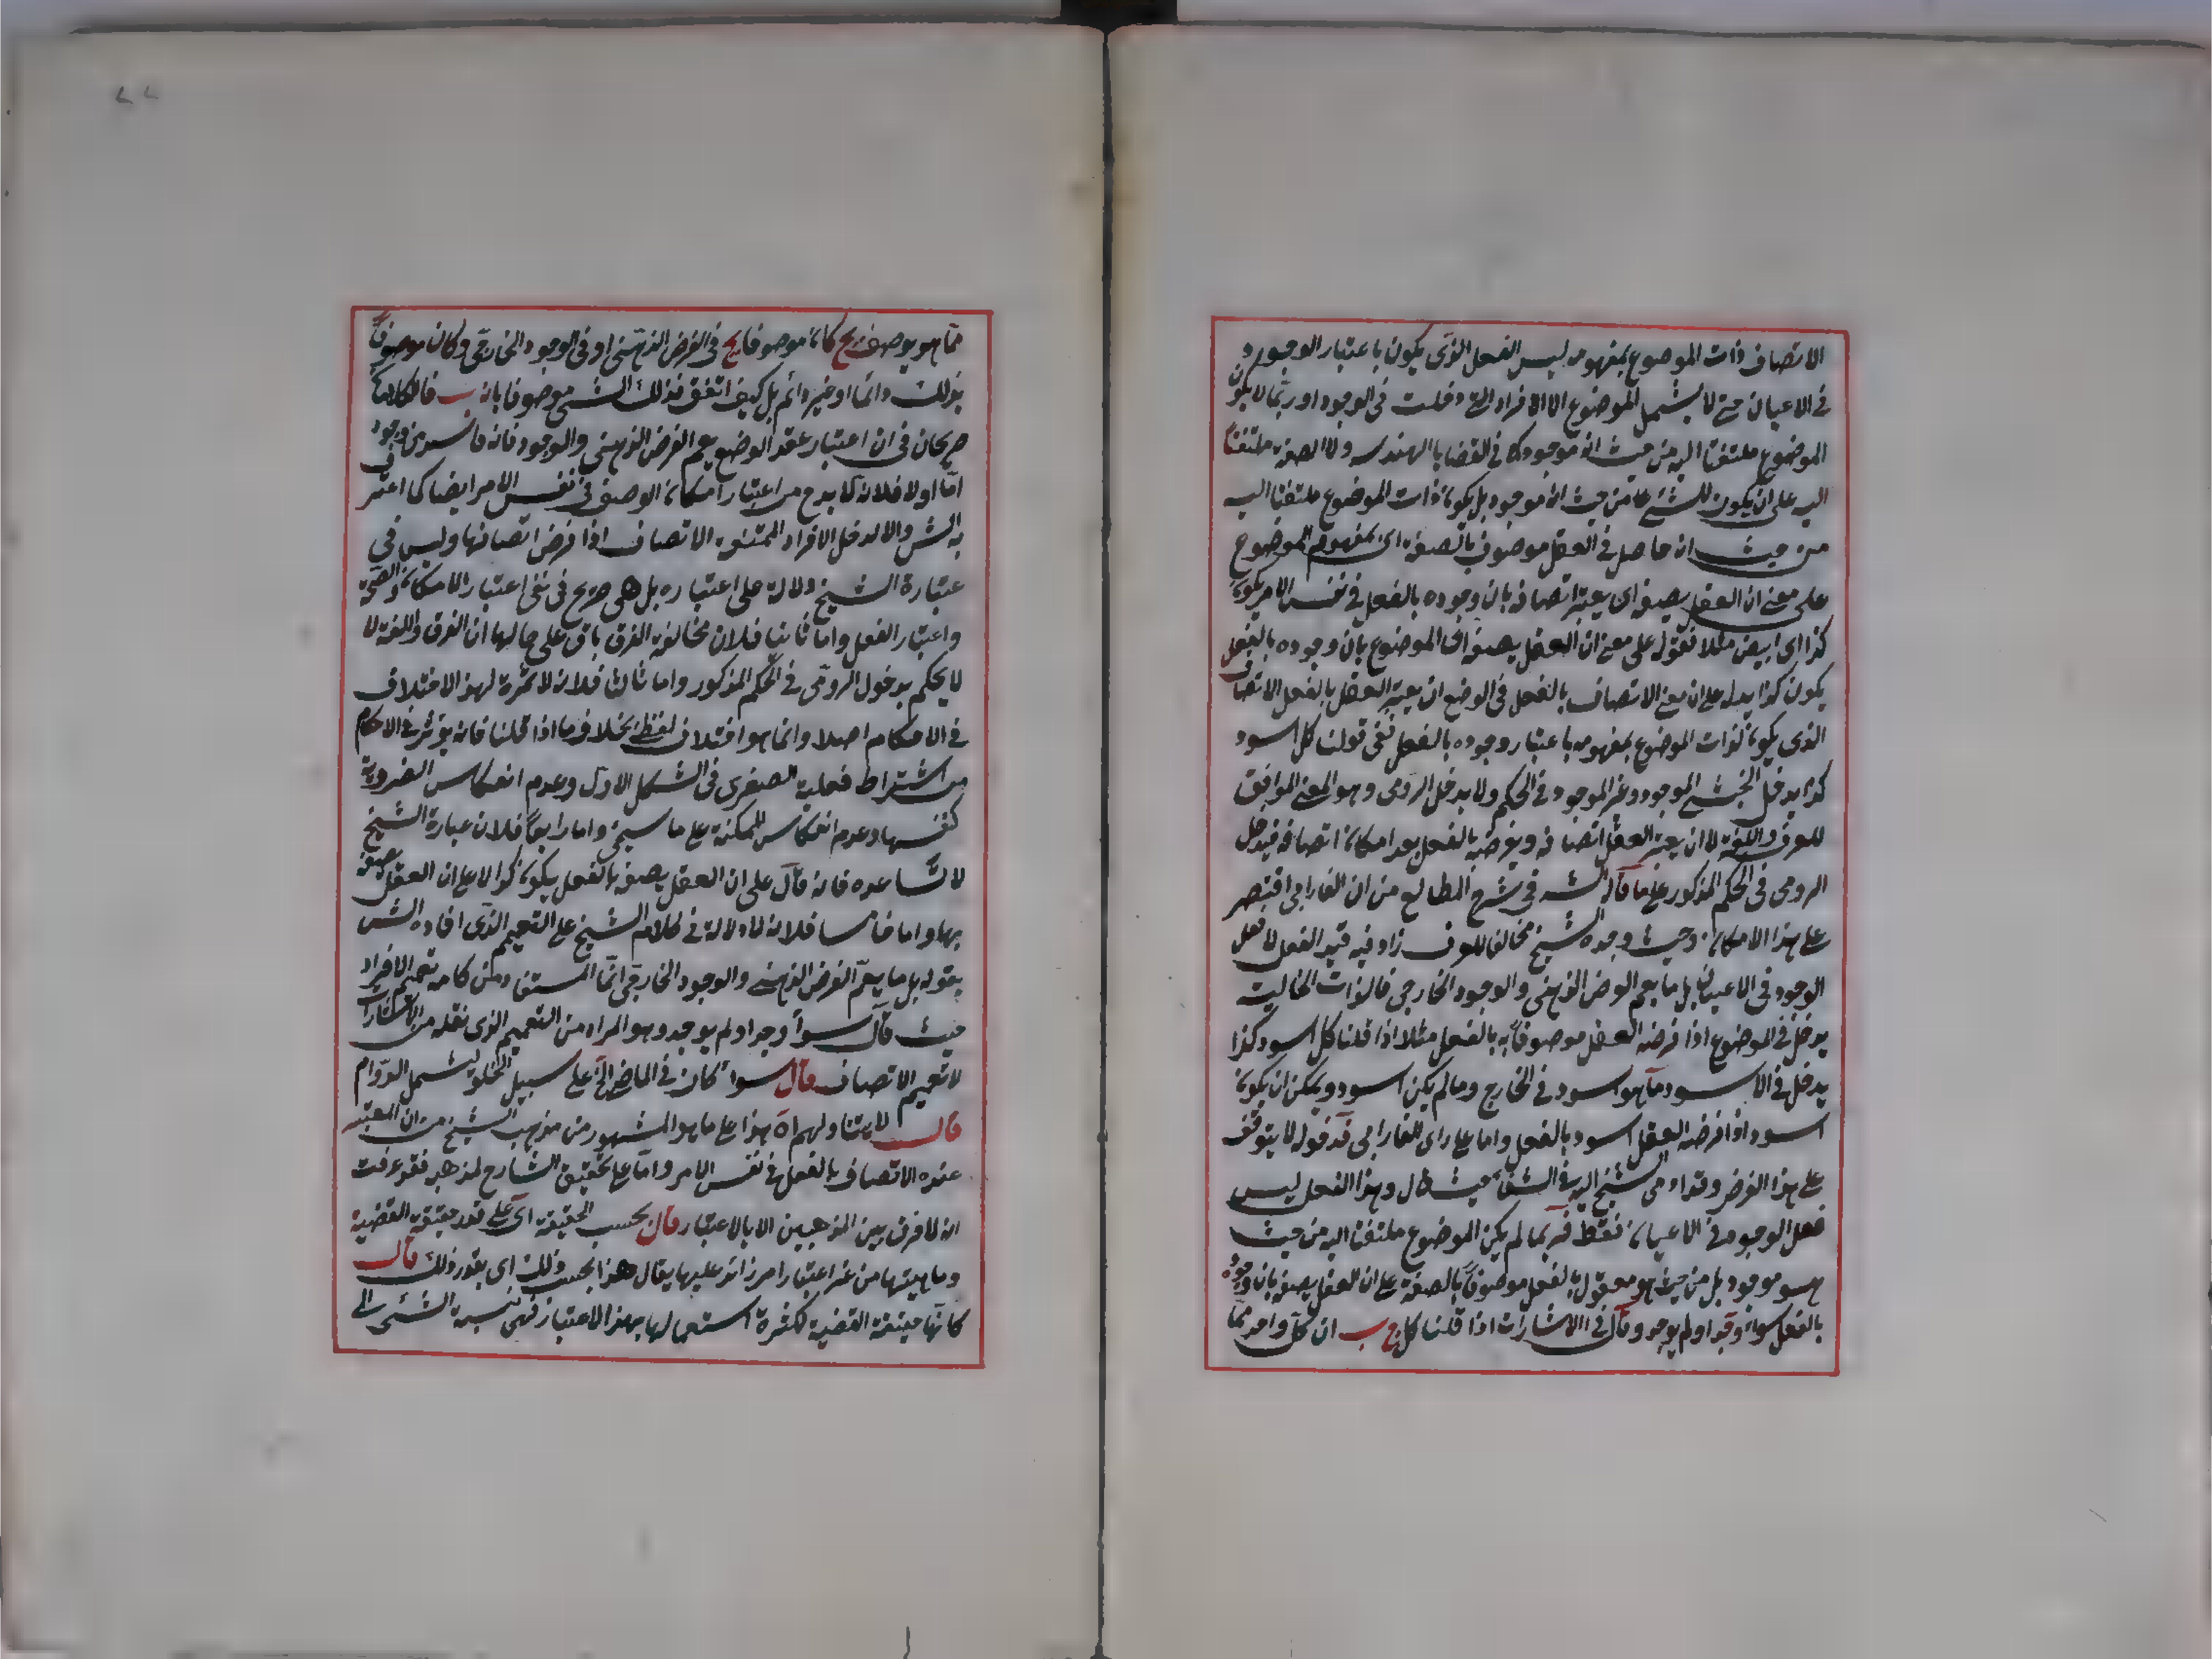 الاتصاف ذات الموضوع بمفهومه ليس الفعل الذى يكون باعتبار الوجود
فى الاعيان حتى لا يشمل الموضوع الا الافراد التى دخلت فى الوجود او ربما لا يكون
الموضوع ملتفتا اليه من حيث انه موجود كما فى القضايا الهندسيه ولا الصفة ملتفتا
اليه على ان يكون للشئ عا من حيث انه موجود بل يكون ذات الموضوع ملتفتا اليه
من حيث انه حاصل فى العقل موصوف بالصفة اى بمفهوم الموضوع
على معنى ان العقل يصفه اى يعتبر اتصافه بان وجوده بالفعل فى نفس الامر يكون
كذا اى ابيض مثلا فقوله على معنى ان العقل يصفه اى الموضوع بان وجوده بالفعل
يكون كذا يدل على ان معنى الاتصاف بالفعل فى الوضع ان يعتبر العقل بالفعل الاتصاف
الذى يكون لذات الموضوع بمفهومه باعتبار وجوده بالفعل ففى قولنا كل اسود
كذا يدخل الحبشى الموجود وغير الموجود فى الحكم ولا يدخل الرومى وهو المعنى الموافق
للعرف واللغة لا ان يعتبر العقل اتصافه ويفرضه بالفعل بعد امكان اتصافه فيدخل
الرومى فى الحكم المذكور على ما قاله الش فى شرح المطالع من ان الفارابى اقتصر
على هذا الامكان وحيث وجده الشيخ مخالفا للعرف زاد فيه قيد الفعل لا فعل
الوجود فى الاعيان بل ما يعم الفرض الذهنى والوجود الخارجى فالذات الخالية
يدخل فى الموضوع اذا فرضه العقل موصوفا به بالفعل مثلا اذا قلنا كل اسود كذا
يدخل فى الاسود ما هو اسود فى الخارج وما لم يكن اسود ويمكن ان يكون
اسود اذا فرضه العقل اسود بالفعل واما على راى الفارابى فدخوله لا يتوقف
على هذا الفرض وقد اومى الشيخ اليه فى الشفاء حيث قال وهذا الفعل ليس
فعل الوجود فى الاعيان فقط فربما لم يكن الموضوع ملتفتا اليه من حيث
هو موجود بل من حيث هو معقول بالفعل موصوفا بالصفة على ان العقل يصفه بان وجوده
بالفعل سواء وجد او لم يوجد وقال فى الاشارات اذا قلنا كل ج ب ان كل واحد مما
مما هو يوصف بج كان موصوفا بج فى الفرض الذهنى او فى الوجود الخارجى وكان موصوفا
بذلك دائما او غير دائم بل كيف اتفق فذلك الشئ موصوف بانه ب فالكلامان
صريحان فى ان اعتبار عقد الوضع يعم الفرض الذهنى والوجود فانه فاسد من وجوه
اما اولا فلانه لا بد ح من اعتبار امكان الوصف فى نفس الامر ايضا كما اعترف
به الش والا لدخل الافراد الممتنعه الاتصاف اذا فرض اتصافها وليس فى
عبارة الشيخ دلالة على اعتباره بل هى صريح فى نفى اعتبار الامكان والصحة
واعتبار الفعل واما ثانيا فلان مخالفة العرف باق على حالها اذ العرف واللغة لا
لا يحكم بدخول الرومى فى الحكم المذكور واما ثالثا فلانه لا ثمرة لهذا الاختلاف
فى الاحكام اصلا وانما هو اختلاف لفظى بخلاف ما اذا قلنا فانه يؤثر فى الاحكام
من اشتراط فعلية الصغرى فى الشكل الاول وعدم انعكاس الضرورية
كنفسها وعدم انعكاس للممكنة على ما سيجئ واما رابعا فلان عبارة الشيخ
لا تساعده فانه قال على ان العقل يصفه بالفعل يكون كذا لا على ان العقل يصفه
بها واما خامسا فلانه لا دلالة فى كلام الشيخ على التعميم الذى افاده الش
بقوله بل ما يعم الفرض الذهنى والوجود الخارجى انما المستفاد من كلامه تعميم الافراد
حيث قال سواء وجد او لم يوجد وهو المراد من التعميم الذى نقله من الاشارات
لا تعميم الاتصاف قال سواء كان فى الماضى الخ على سبيل الخلو يشمل الدوام
قال لا يتناولهم اه هذا على ما هو المشهور من مذهب الشيخ من ان المعتبر
عنده الاتصاف بالفعل فى نفس الامر واما على تحقيق الشارح لمذهبه فقد عرفت
انه لا فرق بين المذهبين الا بالاعتبار قال بحسب الحقيقة اى على قدر حقيقة القضية
وماهيتها من غير اعتبار امر زائد عليها يقال هذا بحسب ذلك اى بقدر ذلك قال
كانها حقيقة القضية لكثرة استعمالها بهذا الاعتبار فهى نسبة الشئ الى